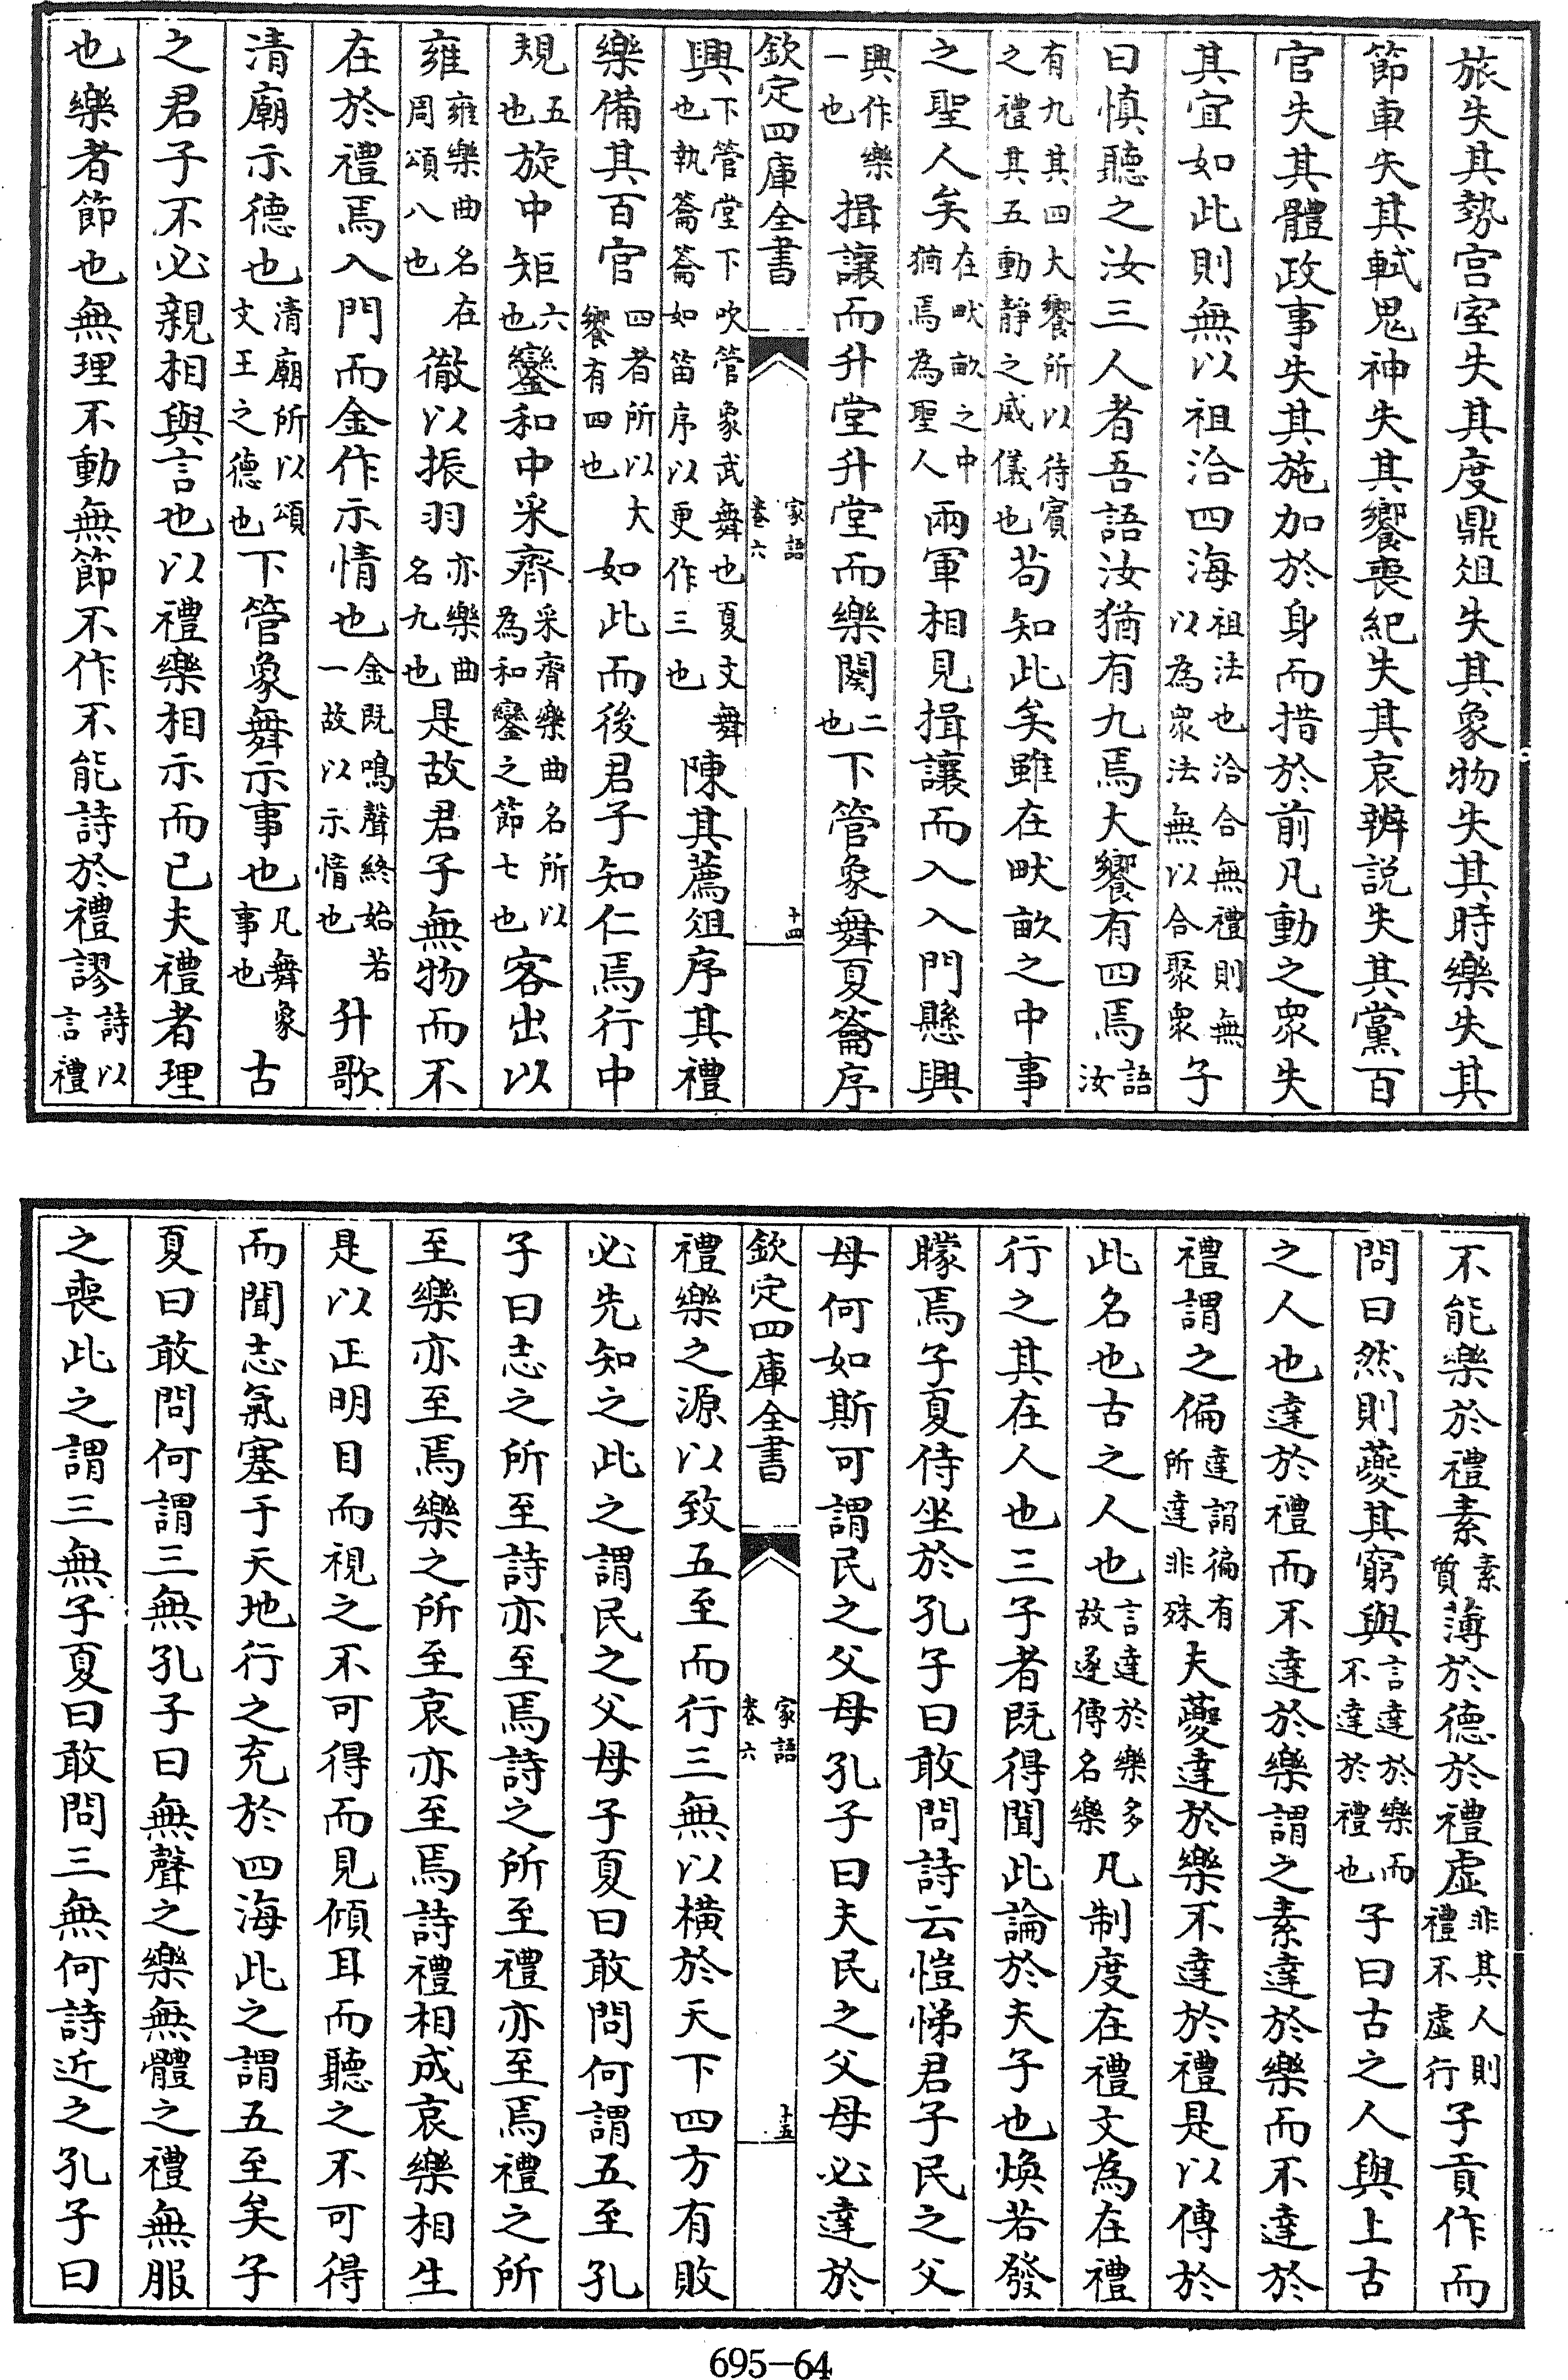 旅失其勢宫室失其度鼎俎失其象物失其時樂失其
節車失其軾鬼神失其饗喪紀失其哀辨説失其黨百
官失其體政事失其施加於身而措於前凡動之衆失
其宜如此則無以祖洽四海祖法也洽合無禮則無以為衆法無以合聚衆子
曰慎聽之汝三人者吾語汝猶有九焉大饗有四焉語汝
有九其四大饗所以待賓之禮其五動靜之威儀也茍知此矣雖在畎畝之中事
之聖人矣在畎畝之中猶焉為聖人兩軍相見揖讓而入入門懸興
興作樂一也揖讓而升堂升堂而樂闋二也下管象舞夏籥序
欽定四庫全書 家語卷六 十四
興下管堂下吹管象武舞也夏文舞也執籥籥如笛序以更作三也陳其薦俎序其禮
樂備其百官四者所以大饗有四也如此而後君子知仁焉行中
規五也旋中矩六也鑾和中采齊采齊樂曲名所以為和鑾之節七也客出以
雍雍樂曲名在周頌八也徹以振羽亦樂曲名九也是故君子無物而不
在於禮焉入門而金作示情也金既鳴聲終始若一故以示情也升歌
清廟示德也清廟所以頌文王之德也下管象舞示事也凡舞象事也古
之君子不必親相與言也以禮樂相示而已夫禮者理
也樂者節也無理不動無節不作不能詩於禮謬詩以言禮
不能樂於禮素素質薄於德於禮虚非其人則禮不虚行子貢作而
問曰然則夔其窮與言達於樂而不達於禮也子曰古之人與上古
之人也達於禮而不達於樂謂之素達於樂而不達於
禮謂之偏達謂徧有所達非殊夫夔達於樂不達於禮是以傳於
此名也古之人也言達於樂多故遂傳名樂凡制度在禮文為在禮
行之其在人也三子者既得聞此論於夫子也煥若發
矇焉子夏侍坐於孔子曰敢問詩云愷悌君子民之父
母何如斯可謂民之父母孔子曰夫民之父母必達於
欽定四庫全書 家語卷六 十五
禮樂之源以致五至而行三無以橫於天下四方有敗
必先知之此之謂民之父母子夏曰敢問何謂五至孔
子曰志之所至詩亦至焉詩之所至禮亦至焉禮之所
至樂亦至焉樂之所至哀亦至焉詩禮相成哀樂相生
是以正明目而視之不可得而見傾耳而聽之不可得
而聞志氣塞于天地行之充於四海此之謂五至矣子
夏曰敢問何謂三無孔子曰無聲之樂無體之禮無服
之喪此之謂三無子夏曰敢問三無何詩近之孔子曰
695-64